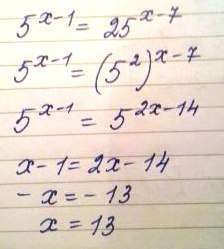 5^{x-1} = 25^{x-7}
5^{x-1} = (5^2)^{x-7}
5^{x-1} = 5^{2x-14}
x-1 = 2x-14
-x = -13
x = 13